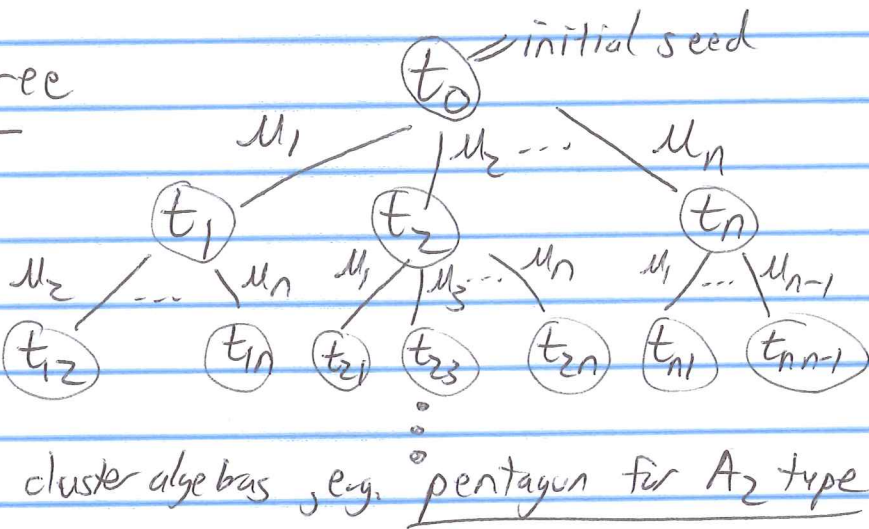 initial seed
ree
t₀
μ₁ μ₂ ... μₙ
t₁ t₂ tₙ
μ₂ ... μₙ μ₁ μ₃ ... μₙ μ₁ ... μₙ₋₁
t₁₂ t₁ₙ t₂₁ t₂₃ t₂ₙ tₙ₁ tₙₙ₋₁
cluster algebras, e.g. pentagon for A₂ type